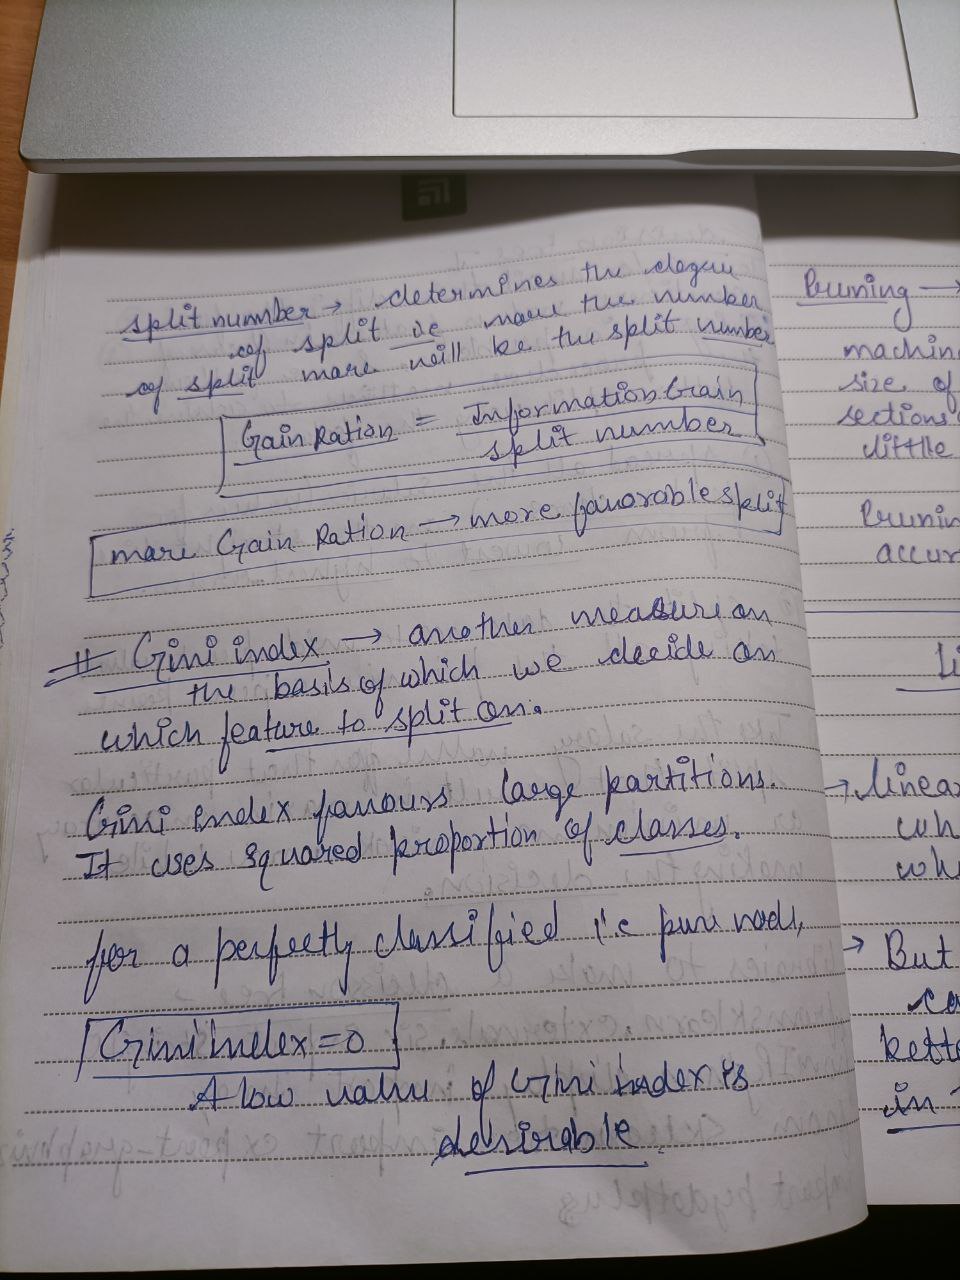 split number → determines the degree
of split ie more the number
of split more will be the split number
Gain Ration = Information Gain
split number
more Gain Ration → more favorable split
# Gini index → another measure on
the basis of which we decide on
which feature to split on.
Gini index favours large partitions.
It uses squared proportion of classes.
for a perfectly classified i.e pure node,
Gini index = 0
A low value of Gini index is
desirable
Pruning →
machin
size of
sections
little
Prunin
accur
Li
→ linear
wh
wh
→ But
co
bette
in